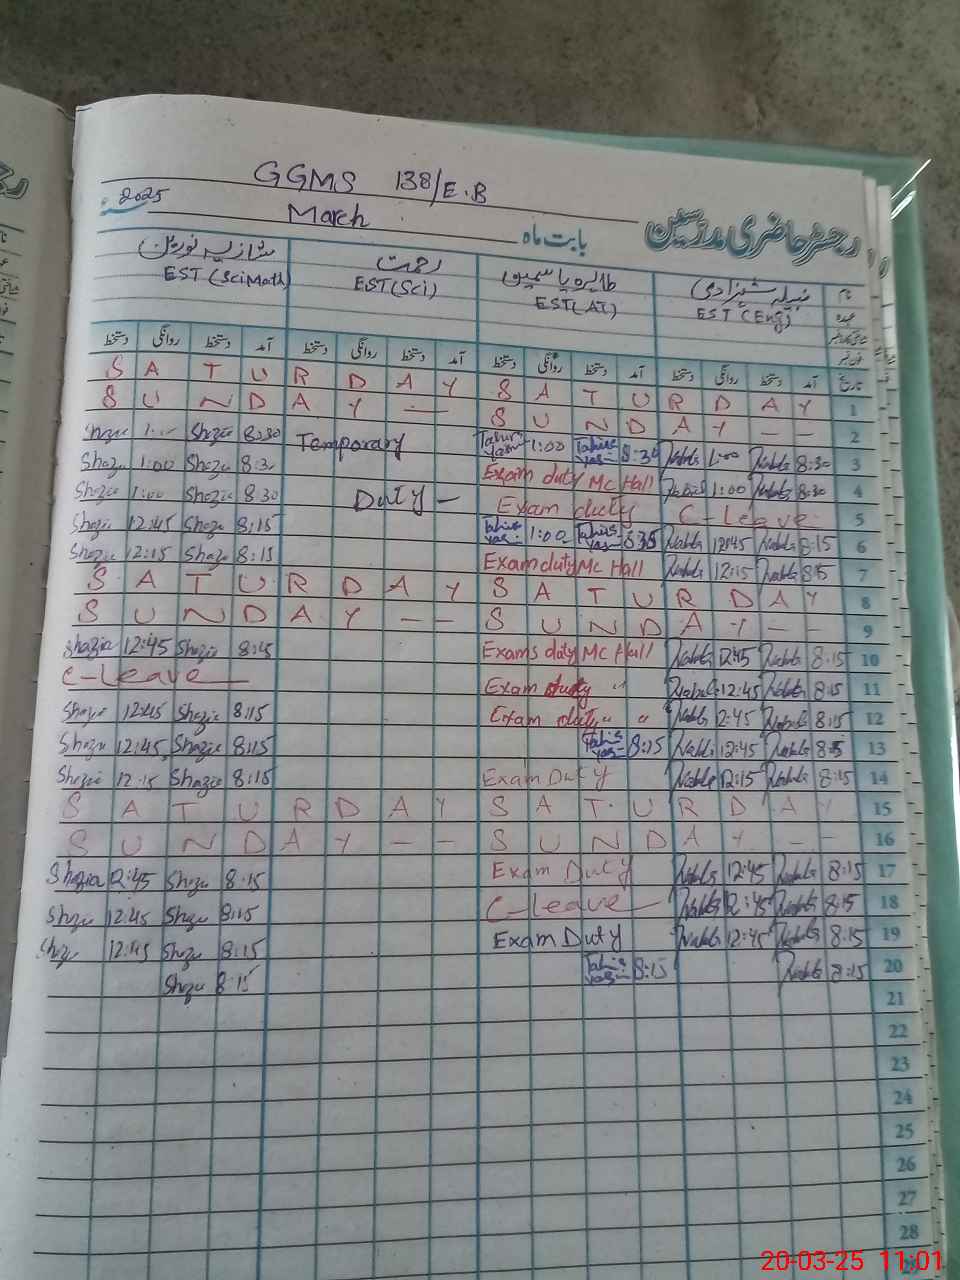 GGMS 138/E.B
2025 March بابت ماہ رجسٹر حاضری مدرسین
شازیہ نورین رحمت طاہرہ یاسمین نبیلہ شہزادی نام
EST (Sci Math) EST (Sci) EST (AT) EST (Eng) عہدہ
دستخط روانگی دستخط آمد دستخط روانگی دستخط آمد دستخط روانگی دستخط آمد دستخط روانگی دستخط آمد تاریخ
S A T U R D A Y S A T U R D A Y 1
S U N D A Y — S U N D A Y — — 2
Shazia 1:00 Shazia 8:30 Temporary Tahira Yas 1:00 Tahira Yas 8:30 Nabila 1:00 Nabila 8:30 3
Shazia 1:00 Shazia 8:30 Exam duty Mc Hall Nabila 1:00 Nabila 8:30 4
Shazia 1:00 Shazia 8:30 Duty — Exam duty C-Leave 5
Shazia 12:45 Shazia 8:15 Tahira Yas 1:00 Tahira Yas 8:35 Nabila 12:45 Nabila 8:15 6
Shazia 12:15 Shazia 8:15 Exam duty Mc Hall Nabila 12:15 Nabila 8:15 7
S A T U R D A Y S A T U R D A Y 8
S U N D A Y — — S U N D A Y — 9
Shazia 12:45 Shazia 8:15 Exams duty Mc Hall Nabila 12:45 Nabila 8:15 10
C-Leave Exam duty " Nabila 12:45 Nabila 8:15 11
Shazia 12:45 Shazia 8:15 Exam duty " " Nabila 12:45 Nabila 8:15 12
Shazia 12:45 Shazia 8:15 Tahira Yas 8:15 Nabila 12:45 Nabila 8:15 13
Shazia 12:15 Shazia 8:15 Exam Duty Nabila 12:15 Nabila 8:15 14
S A T U R D A Y S A T U R D A Y 15
S U N D A Y — — S U N D A Y — 16
Shazia 12:45 Shazia 8:15 Exam Duty Nabila 12:45 Nabila 8:15 17
Shazia 12:45 Shazia 8:15 C-Leave Nabila 12:45 Nabila 8:15 18
Shazia 12:45 Shazia 8:15 Exam Duty Nabila 12:45 Nabila 8:15 19
Shazia 8:15 Tahira Yas 8:15 Nabila 8:15 20
21
22
23
24
25
26
27
28
20-03-25 11:01